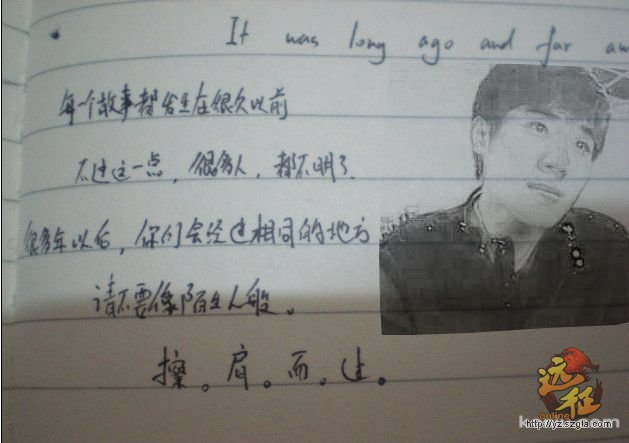 It was long ago and far aw
每个故事都发生在很久以前
不过这一点，很多人，都不明了.
很多年以后，你们会经过相同的地方
请不要像陌生人般。
擦。肩。而。过。
远征
online
http://yz.szgla.com